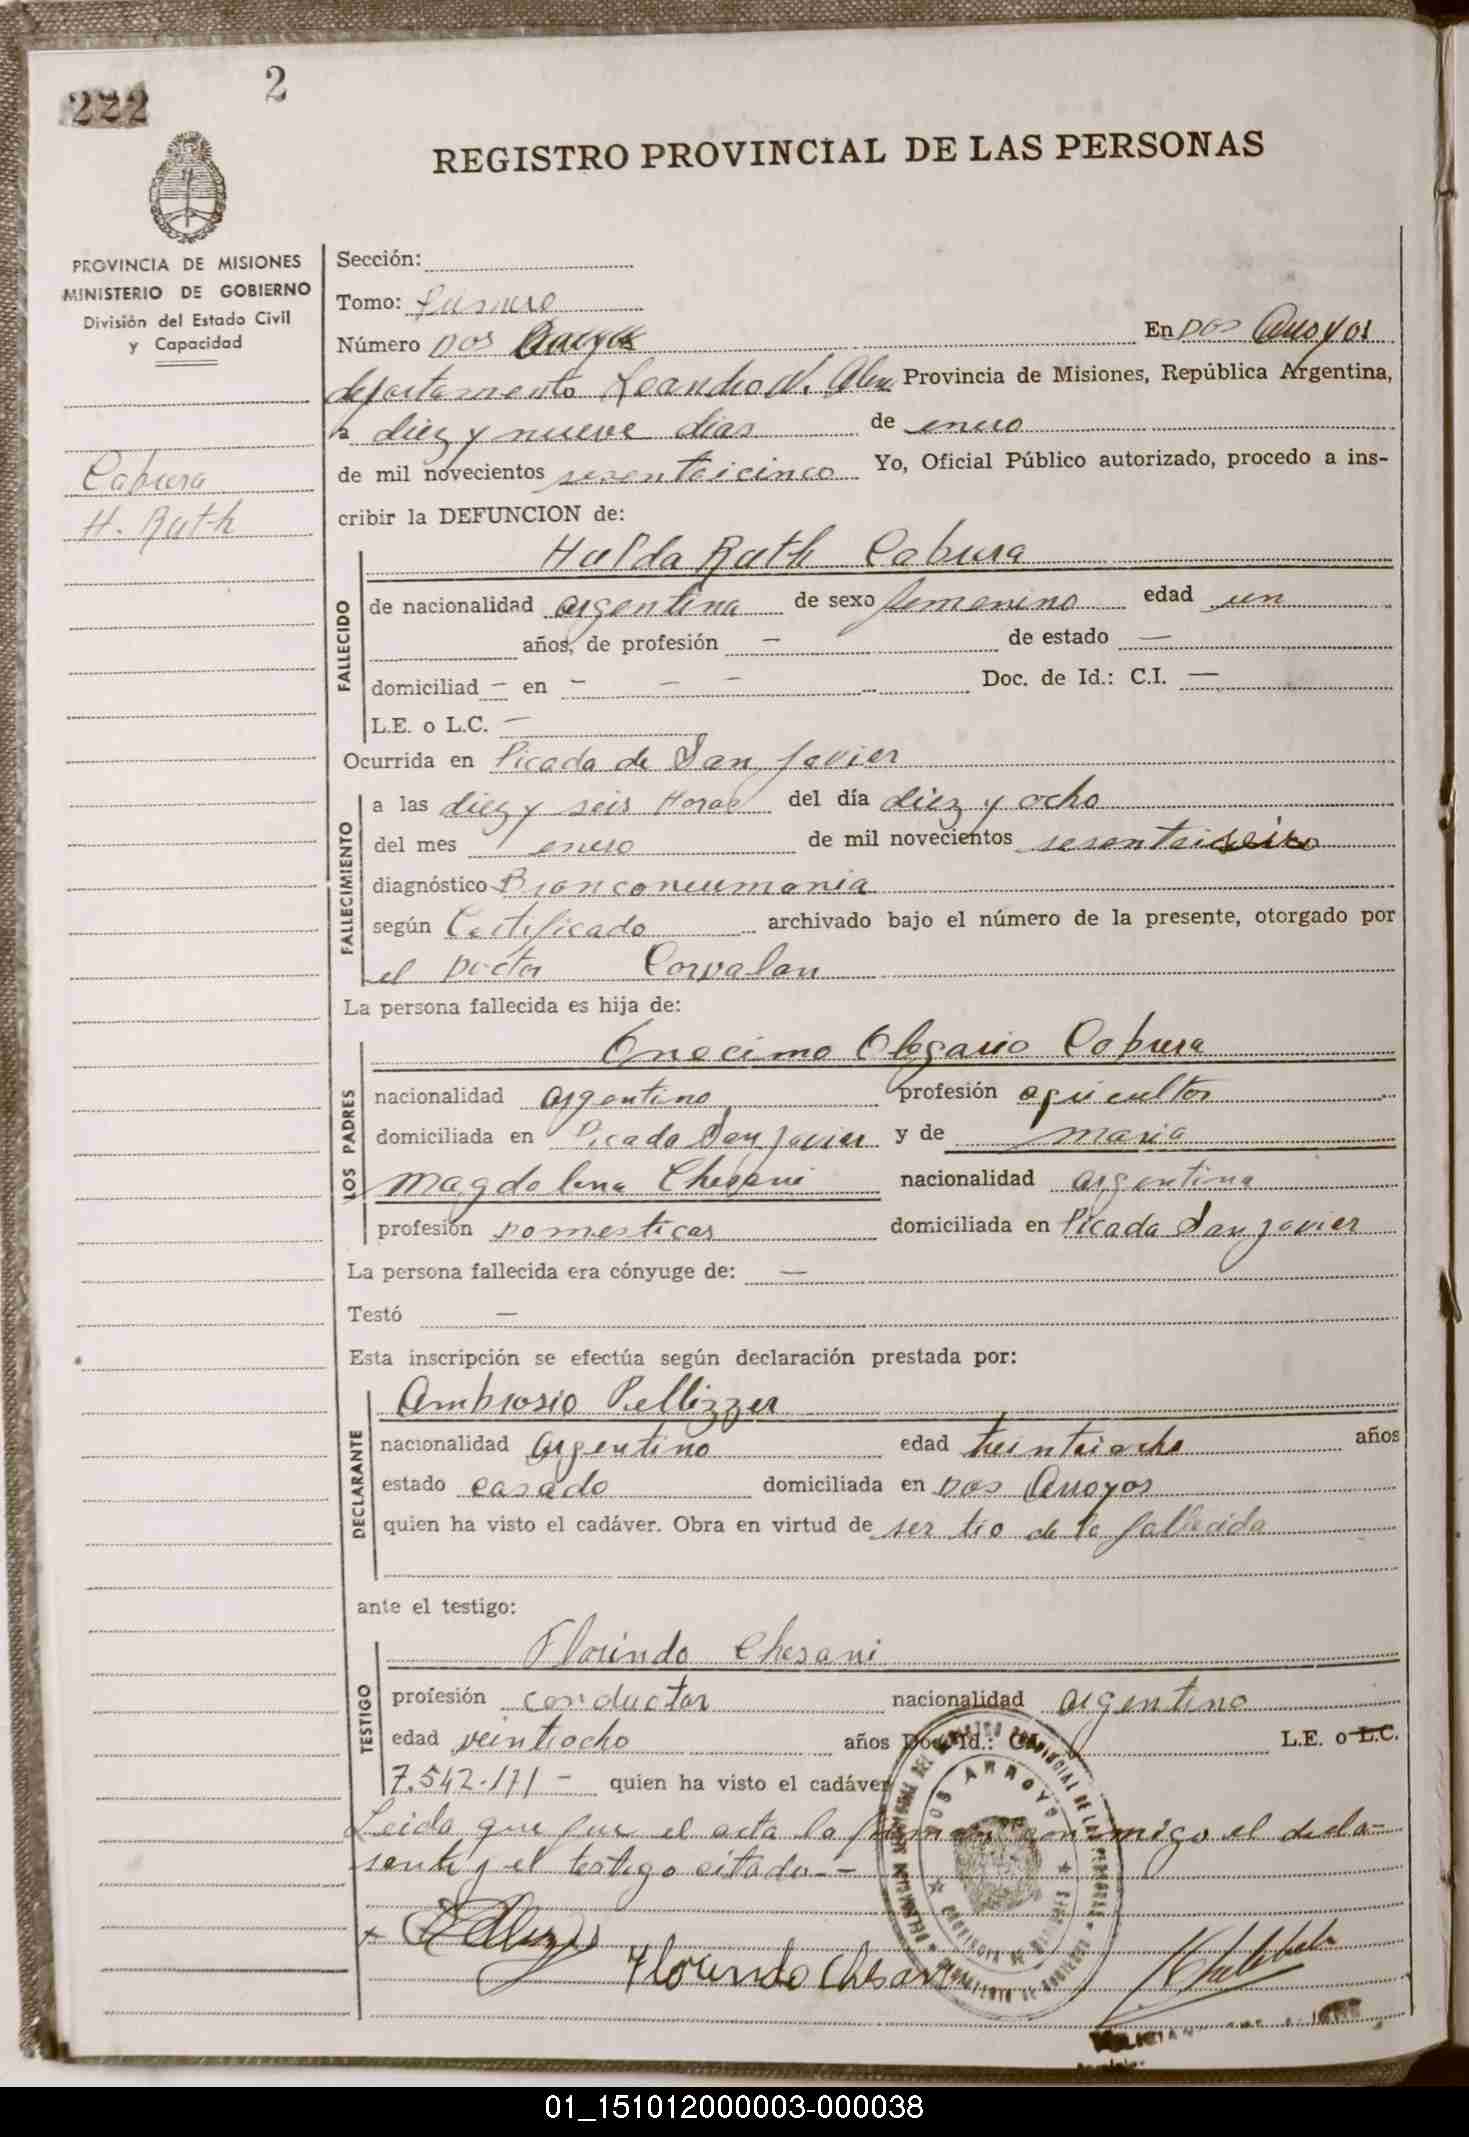 222
2
REGISTRO PROVINCIAL DE LAS PERSONAS
PROVINCIA DE MISIONES
MINISTERIO DE GOBIERNO
División del Estado Civil
y Capacidad
Cabrera
H. Ruth
Sección:
Tomo: Primero
Número Dos
En Dos Arroyos
departamento Leandro N. Alem Provincia de Misiones, República Argentina,
a diez y nueve dias de enero
de mil novecientos sesentaicinco Yo, Oficial Público autorizado, procedo a ins-
cribir la DEFUNCION de:
Hulda Ruth Cabrera
FALLECIDO
de nacionalidad argentina de sexo femenino edad un
años, de profesión — de estado —
domiciliad — en — — — Doc. de Id.: C.I. —
L.E. o L.C. —
Ocurrida en Picada de San Javier
FALLECIMIENTO
a las diez y seis Horas del día diez y ocho
del mes enero de mil novecientos
diagnóstico Bronconeumonia
según Certificado archivado bajo el número de la presente, otorgado por
el Doctor Corvalan
La persona fallecida es hija de:
LOS PADRES
Onecimo Olegario Cabrera
nacionalidad argentino profesión agricultor
domiciliada en Picada San Javier y de maria
Magdalena Chesani nacionalidad argentina
profesión Domesticas domiciliada en Picada San Javier
La persona fallecida era cónyuge de: —
Testó —
Esta inscripción se efectúa según declaración prestada por:
DECLARANTE
Ambrosio Pellizzer
nacionalidad argentino edad treintaiocho años
estado casado domiciliada en Dos Arroyos
quien ha visto el cadáver. Obra en virtud de ser tio de la fallecida
ante el testigo:
TESTIGO
Florindo Chesani
profesión conductor nacionalidad argentino
edad veintiocho años Doc. Id.: C.I. L.E. o L.C.
7.542.171 — quien ha visto el cadáver
Leida que fue el acta la firman conmigo el decla-
rante y el testigo citado —
Florindo Chesani
DOS ARROYOS
PROVINCIA DE MISIONES
01_151012000003-000038